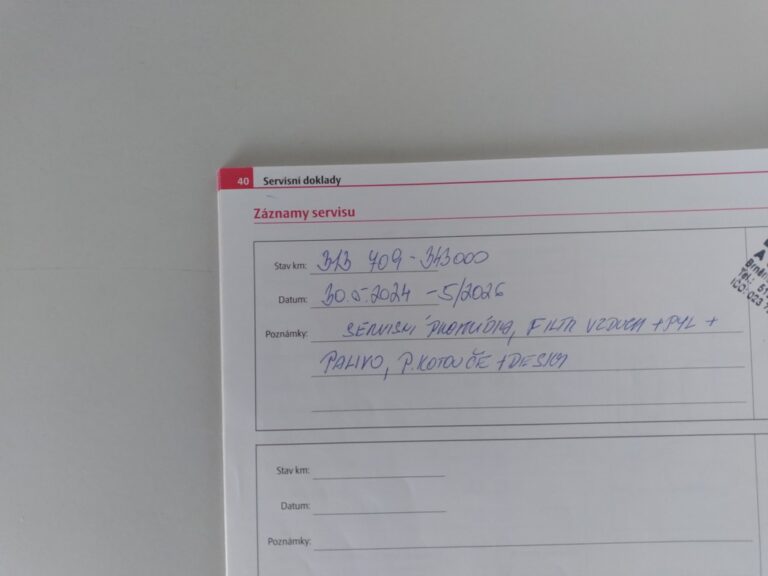 40 Servisní doklady
Záznamy servisu
Stav km: 313 709 - 343000
Datum: 30.5.2024 - 5/2026
Poznámky: SERVISNÍ PROHLÍDKA, FILTR VZDUCH + PYL +
PALIVO, P. KOTOUČE + DESKY
Stav km:
Datum:
Poznámky: